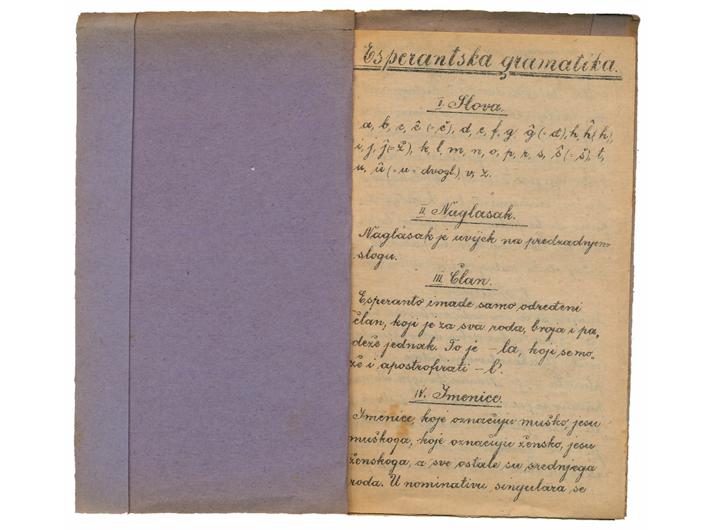 Esperantska gramatika.
I. Slova.
a, b, c, ĉ (=č), d, e, f, g, ĝ (=đ), h, ĥ (h),
i, j, ĵ (=ž), k, l, m, n, o, p, r, s, ŝ (=š), t,
u, ŭ (=u=dvogl), v, z.
II. Naglasak.
Naglasak je uvijek na predzadnjem
slogu.
III. Član.
Esperanto imade samo određeni
član, koji je za sva roda, broja i pa-
deže jednak. To je -la, koji se mo-
že i apostrofirati - l'.
IV. Imenice.
Imenice, koje označuju muško, jesu
muškoga, koje označuju žensko, jesu
ženskoga, a sve ostale su srednjega
roda. U nominativu singulara se